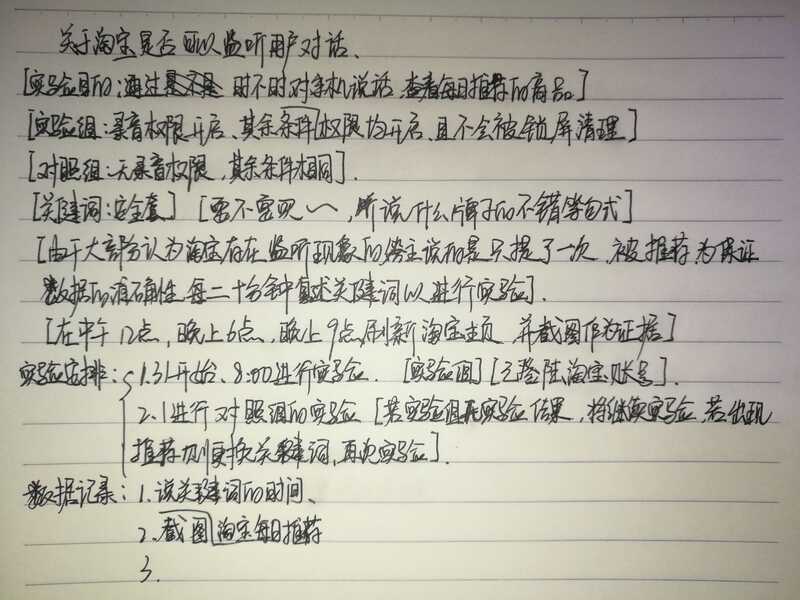 关于淘宝是否可以监听用户对话、
[实验目的:通过 时不时对手机说话,查看每日推荐的商品]
[实验组:录音权限开启、其余条件权限均开启、且不会被锁屏清理]
[对照组:无录音权限,其余条件相同].
[关键词:安全套] [要不要买~,听说什么牌子的不错等句式]
[由于大部分认为淘宝存在监听现象的 说的是只提了一次,被推荐,为保证
数据的准确性,每二十分钟复述关键词以进行实验].
[在中午12点,晚上6点,晚上9点,刷新淘宝主页,并截图作为证据]
实验安排:1.31开始、8:00进行实验. [实验组][已登陆淘宝账号].
2.1进行对照组的实验 [若实验组无实验结果,将继续实验,若出现
推荐,则更换关键词,再次实验].
数据记录:1.说关键词的时间、
2.截图淘宝每日推荐
3.